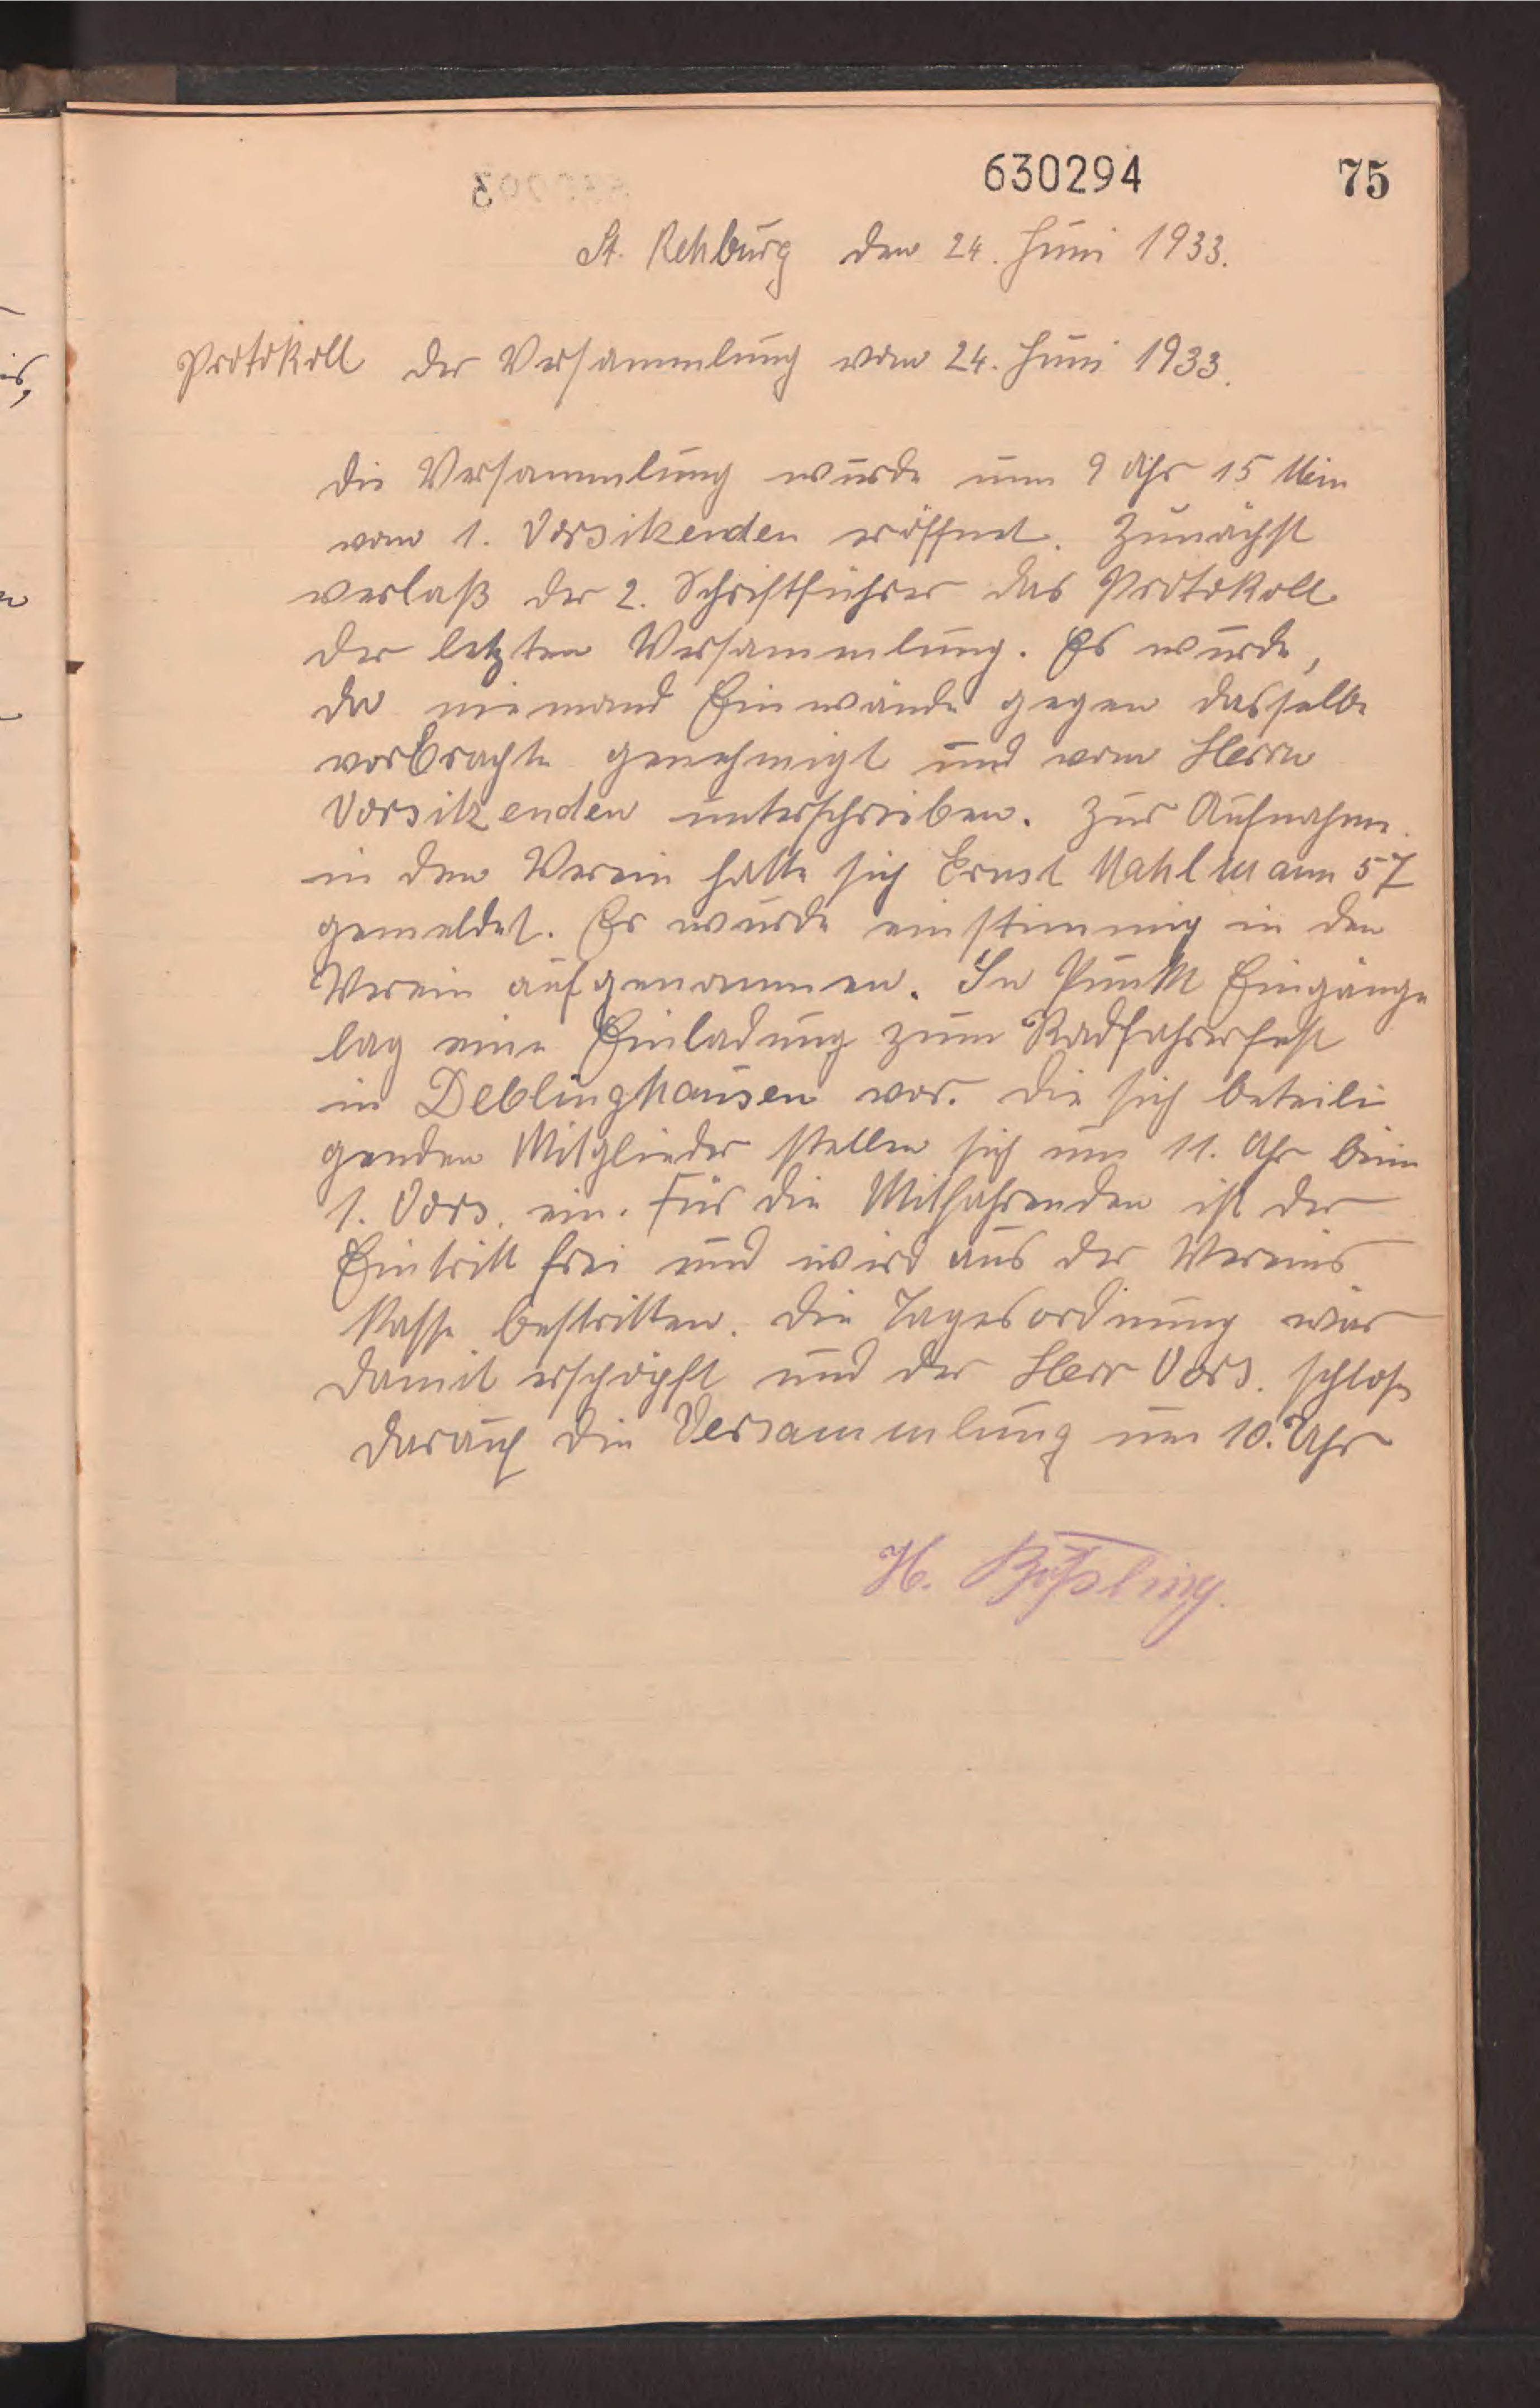 630294 75
St. Rehburg den 24. Juni 1933.
Protokoll der Versammlung vom 24. Juni 1933.
Die Versammlung wurde um 9 Uhr 15 Min
vom 1. Vorsitzenden eröffnet. Zunächst
verlaß der 2. Schriftführer das Protokoll
der letzten Versammlung. Es wurde,
da niemand Einwände gegen dasselbe
vorbrachte genehmigt und vom Herrn
Vorsitzenden unterschrieben. Zur Aufnahme
in den Verein hatte sich Ernst Mahlmann 57
gemeldet. Er wurde einstimmig in den
Verein aufgenommen. In Punkt Eingänge
lag eine Einladung zum Radfahrerfest
in Deblinghausen vor. Die sich beteili
genden Mitglieder stellen sich um 11. Uhr beim
1. Vors. ein. Für die Mitfahrenden ist der
Eintritt frei und wird aus der Vereins
Kasse bestritten. Die Tagesordnung war
damit erschöpft und der Herr Vors. schloß
darauf die Versammlung um 10. Uhr
H.